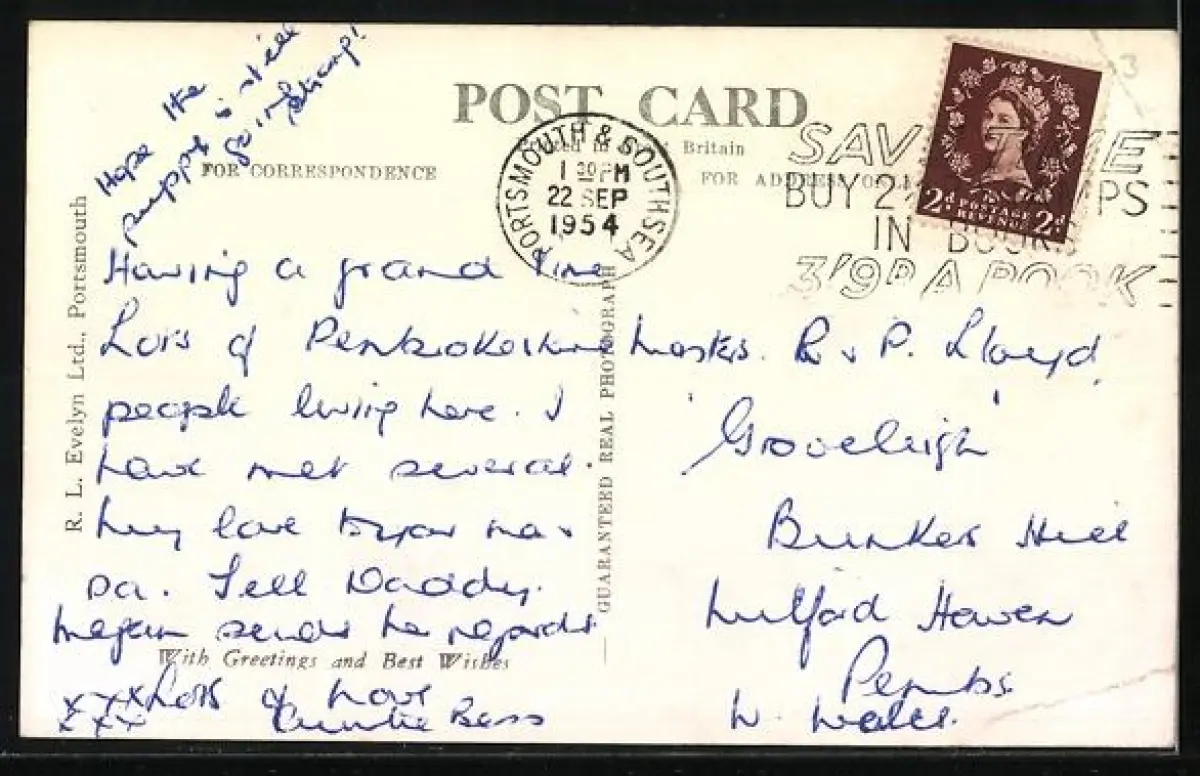 Hope the
puppy is still
going strong!
POST CARD
Printed in Great Britain
FOR CORRESPONDENCE
FOR ADDRESS ONLY
PORTSMOUTH & SOUTHSEA
1 30 PM
22 SEP
1954
SAVE TIME
BUY 2½ STAMPS
IN BOOKS
3'9D A BOOK
2d POSTAGE REVENUE 2d
R. L. Evelyn Ltd., Portsmouth
GUARANTEED REAL PHOTOGRAPH
Having a grand time
Lots of Pembrokeshire
people living here. I
have met several.
My love to your ma &
Da. Tell Daddy.
Megan sends her regards
With Greetings and Best Wishes
xxx Lots of Love
xxx Auntie Bess
Masters. R & P. Lloyd,
'Groveleigh'
Bunkers Hill
Milford Haven
Pembs
W. Wales.